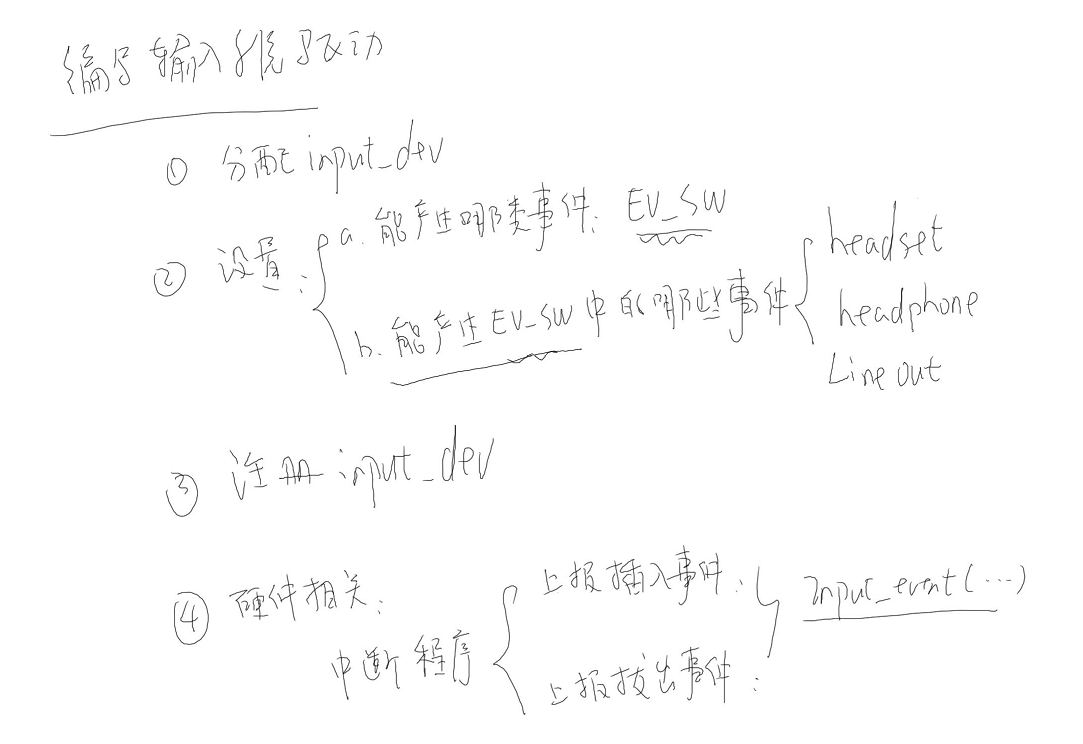 编写输入系统驱动
① 分配 input_dev
② 设置：
a. 能产生哪类事件：EV_SW
b. 能产生EV_SW中的哪些事件
headset
headphone
Line out
③ 注册 input_dev
④ 硬件相关：
中断程序
上报插入事件：
上报拔出事件：
Input_event(...)